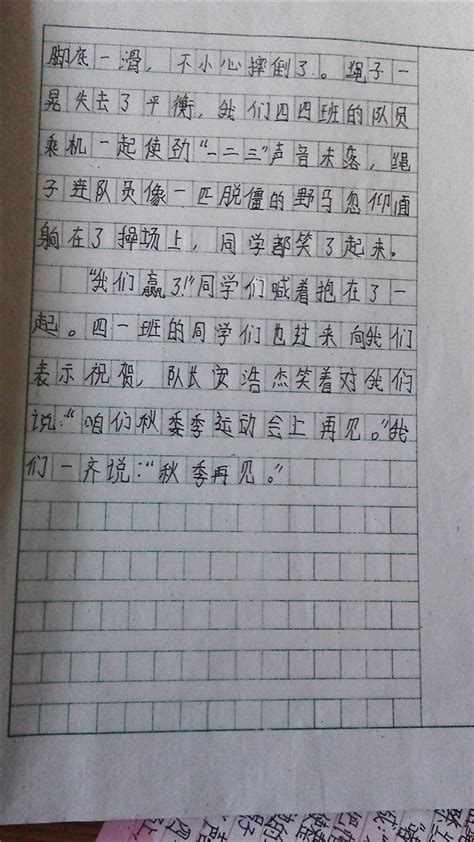 脚底一滑，不小心摔倒了。绳子一
晃失去了平衡，我们四四班的队员
乘机一起使劲“一二三”声音未落，绳
子进队员像一匹脱僵的野马忽仰面
躺在了操场上，同学都笑了起来。
“我们赢了！”同学们喊着抱在了一
起。四一班的同学们也过来向我们
表示祝贺，队长安浩杰笑着对我们
说：“咱们秋委季运动会上再见。”我
们一齐说：“秋季再见。”